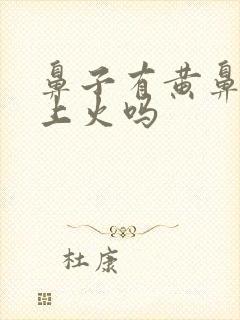 鼻子有黄鼻
上火吗
杜康